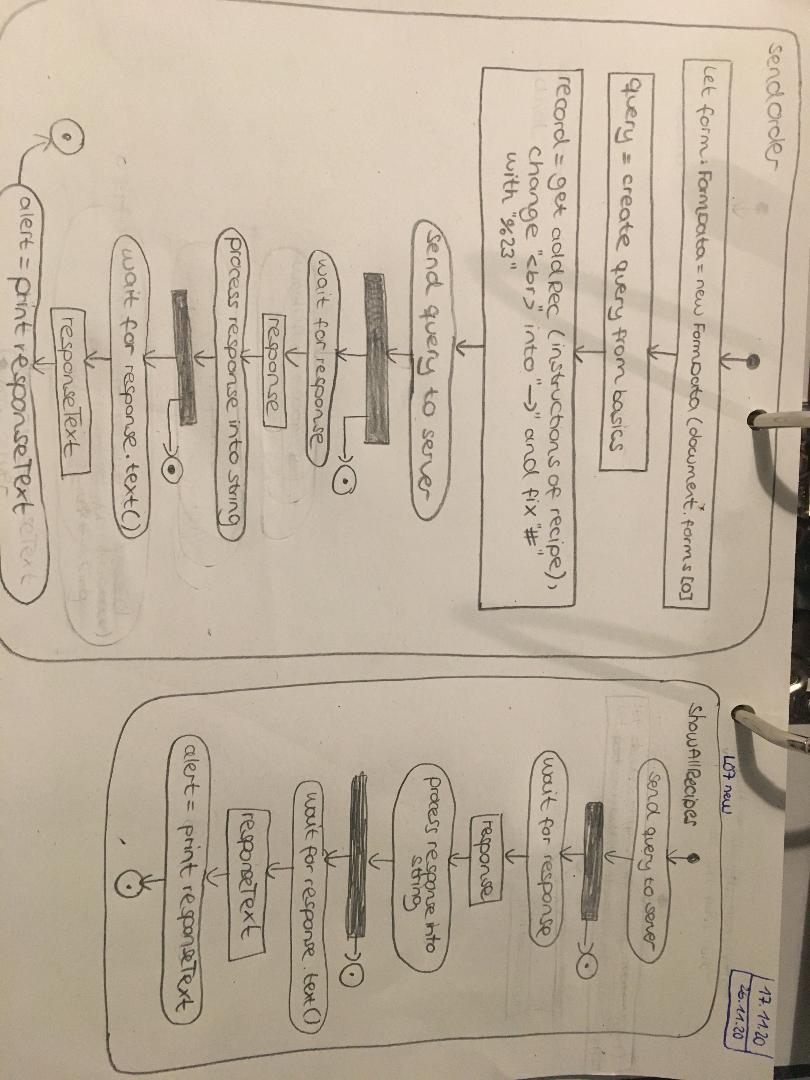 sendOrder
let form: FormData = new FormData (document.forms[0]
query = create query from basics
record = get addRec (instructions of recipe),
change "<br>" into "→" and fix "#"
with "%23"
send query to server
wait for response
response
process response into string
wait for response.text()
responseText
alert = print responseText
17.11.20
26.11.20
L07 new
showAllRecipes
send query to server
wait for response
response
process response into
string
wait for response.text()
responseText
alert = print responseText